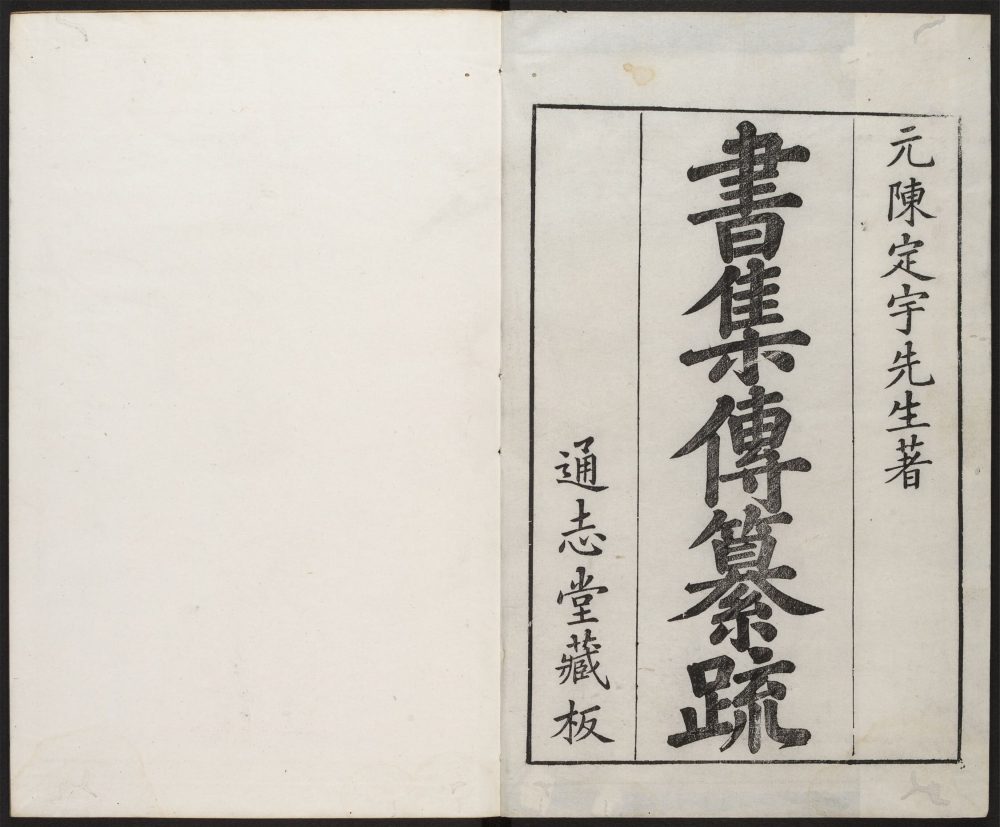 元陳定宇先生著
書集傳纂疏
通志堂藏板